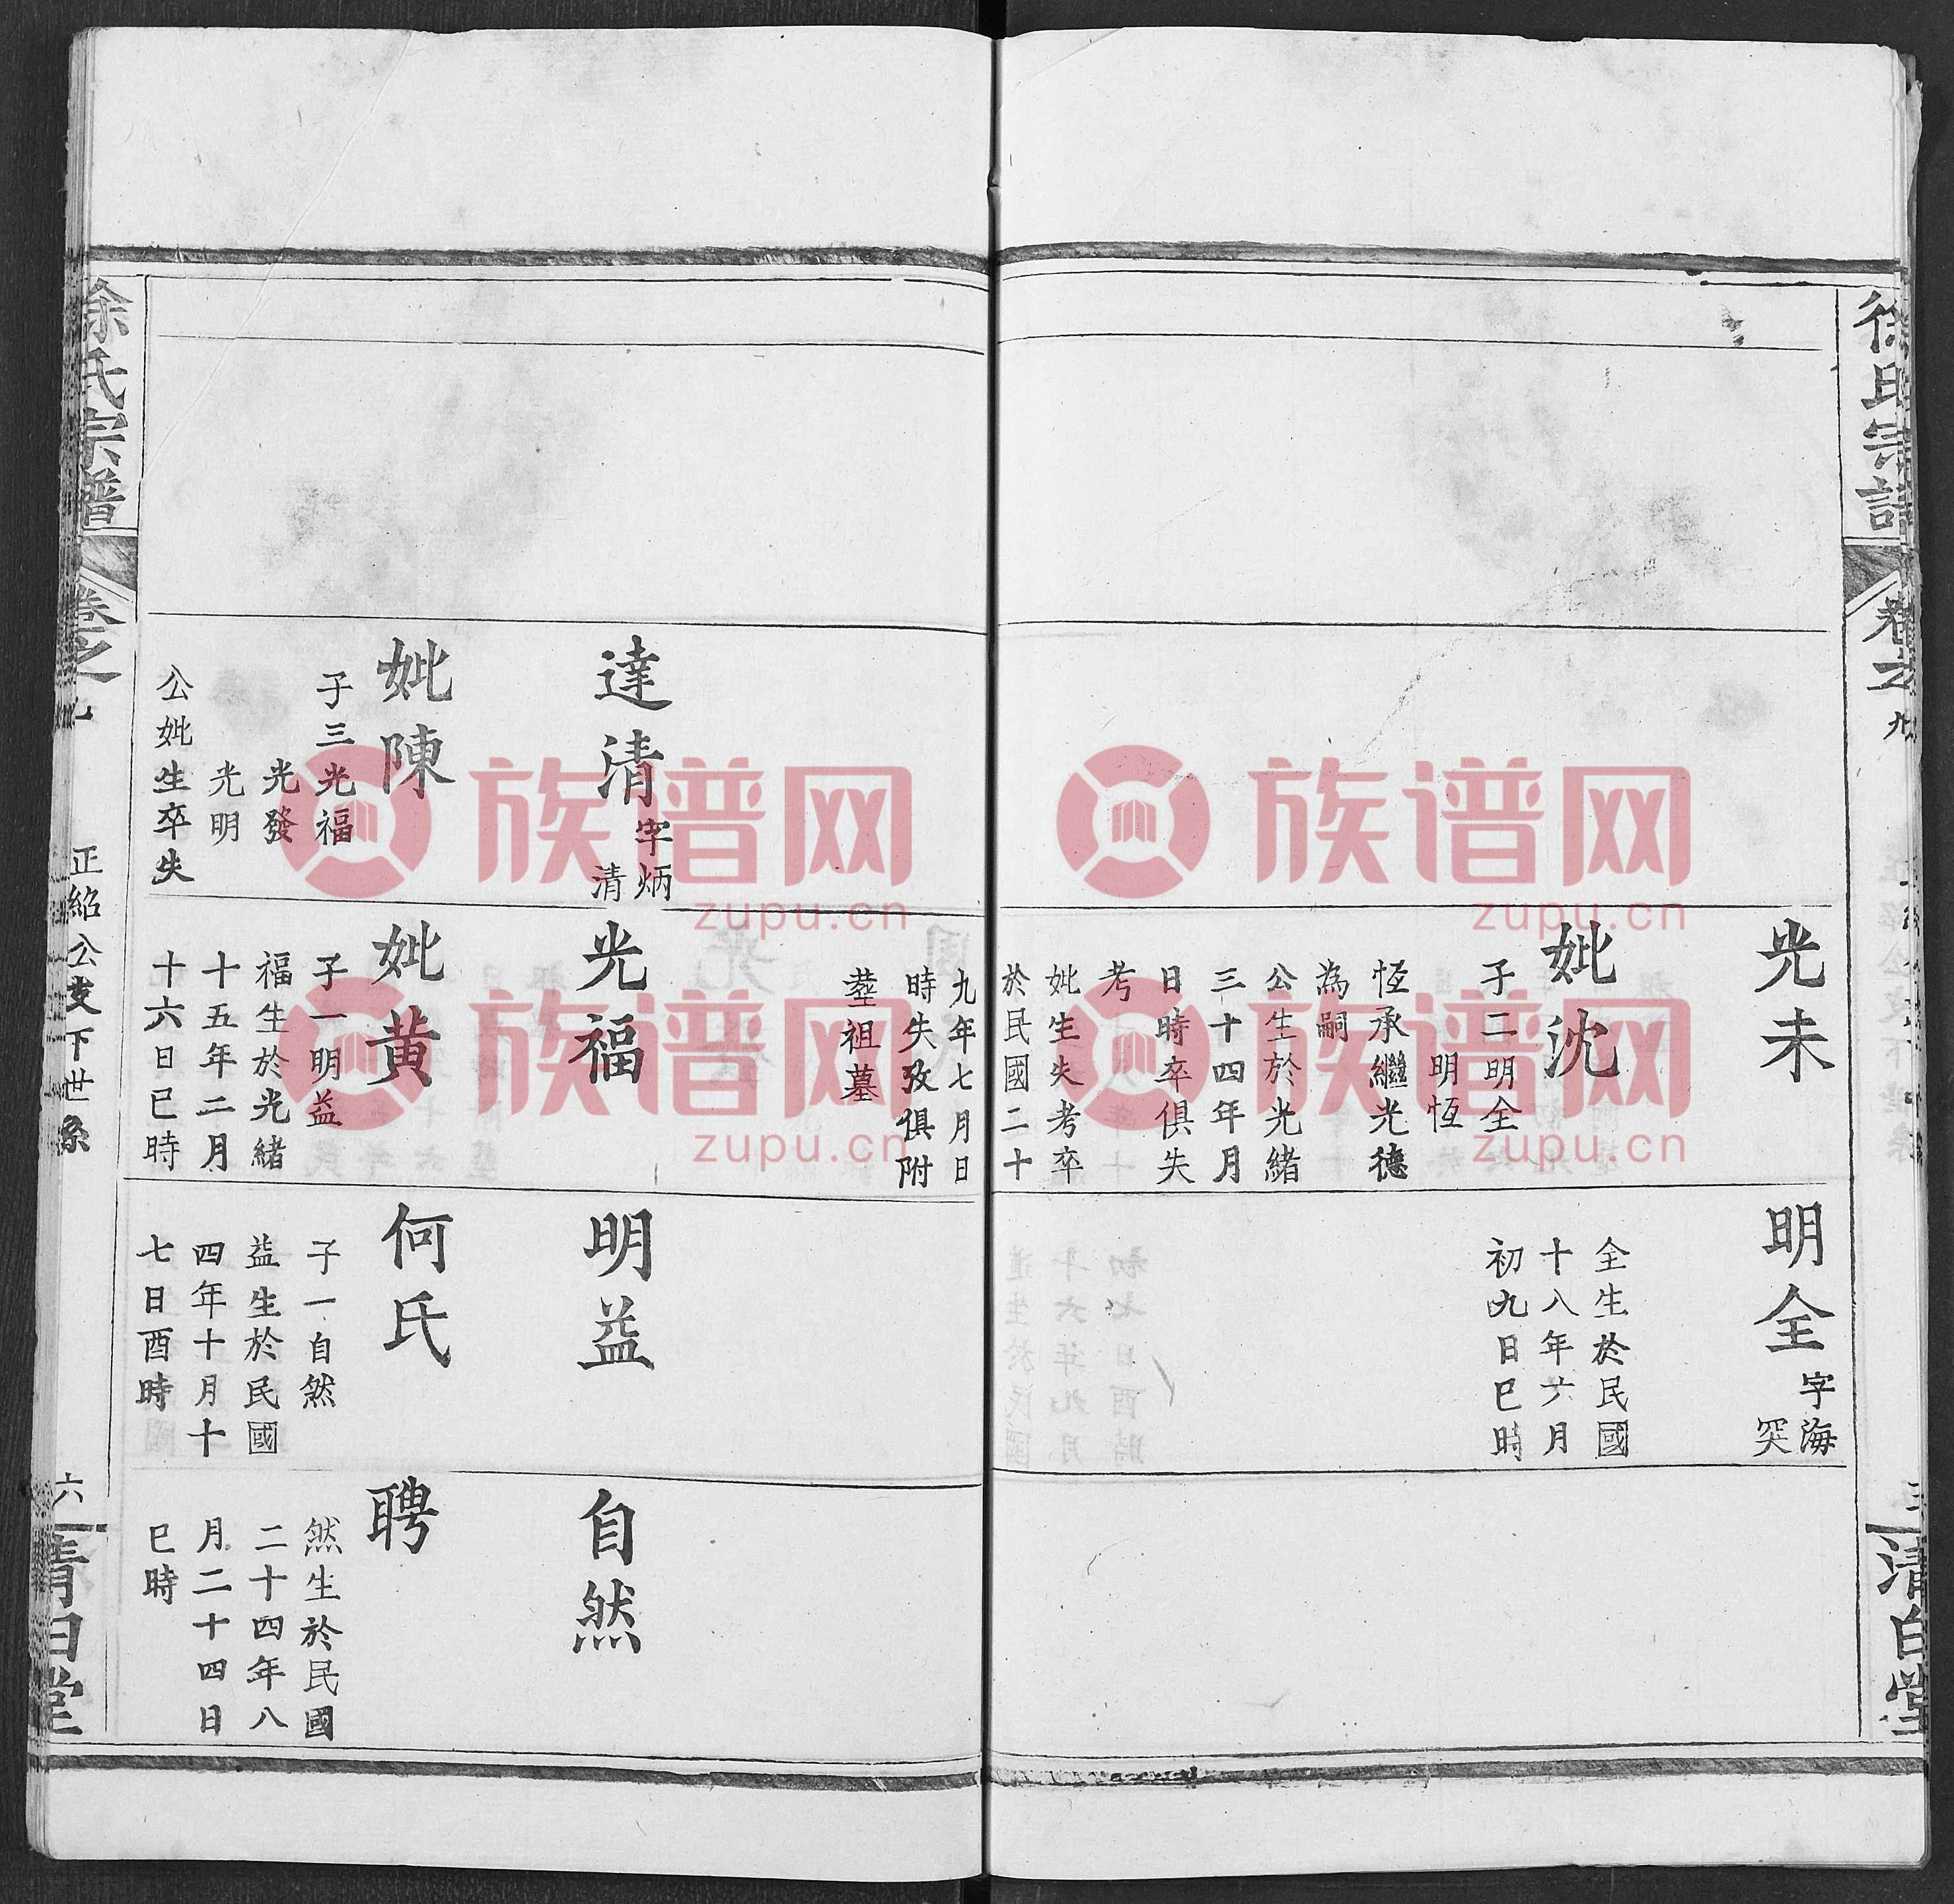 徐氏宗譜
卷之九
清白堂
光未
妣沈
子二明全
明恆
恆承繼光德
為嗣
公生於光緒
三十四年月
日時卒俱失
考
妣生失考卒
於民國二十
九年七月日
時失攷俱附
塟祖墓
明全
字海
突
全生於民國
十八年六月
初九日巳時
達清
字炳
清
妣陳
子三光福
光發
光明
公妣生卒失
光福
妣黄
子一明益
福生於光緒
十五年二月
十六日巳時
明益
何氏
子一自然
益生於民國
四年十月十
七日酉時
自然
聘
然生於民國
二十四年八
月二十四日
巳時
徐氏宗譜
卷之九
正紹公支下世系
六
清白堂
族谱网
zupu.cn
族谱网
zupu.cn
族谱网
zupu.cn
族谱网
zupu.cn